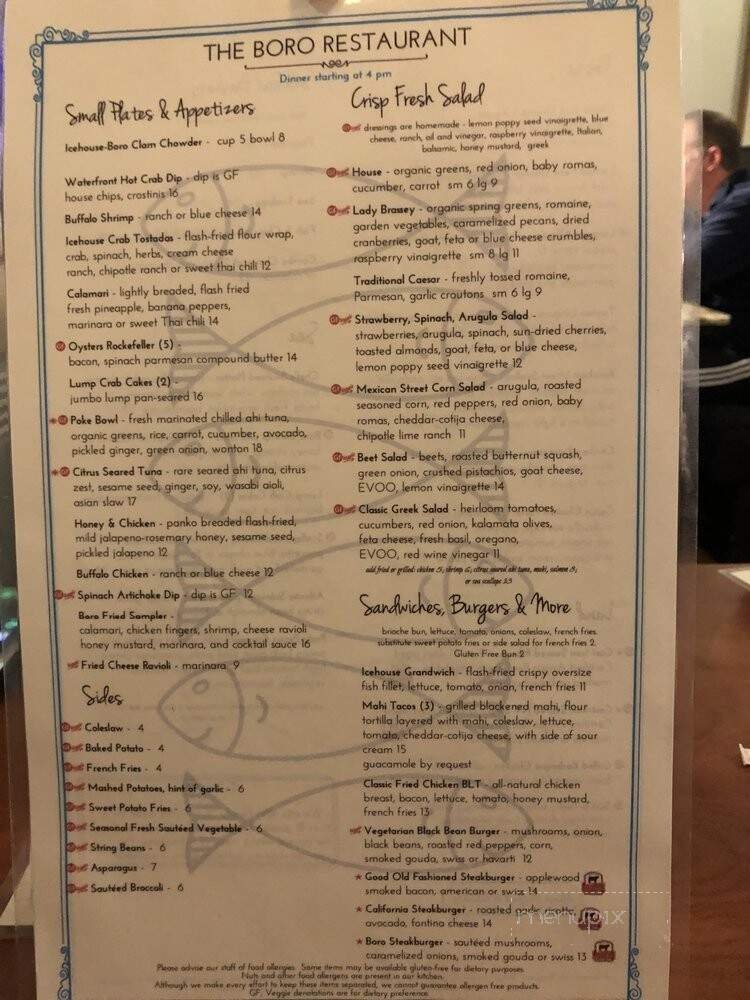 THE BORO RESTAURANT
Dinner starting at 4 pm
Small Plates & Appetizers
Icehouse-Boro Clam Chowder - cup 5 bowl 8
Waterfront Hot Crab Dip - dip is GF
house chips, crostinis 16
Buffalo Shrimp - ranch or blue cheese 14
Icehouse Crab Tostadas - flash-fried flour wrap,
crab, spinach, herbs, cream cheese
ranch, chipotle ranch or sweet thai chili 12
Calamari - lightly breaded, flash fried
fresh pineapple, banana peppers,
marinara or sweet Thai chili 14
Oysters Rockefeller (5) -
bacon, spinach parmesan compound butter 14
Lump Crab Cakes (2) -
jumbo lump pan-seared 16
Poke Bowl - fresh marinated chilled ahi tuna,
organic greens, rice, carrot, cucumber, avocado,
pickled ginger, green onion, wonton 18
Citrus Seared Tuna - rare seared ahi tuna, citrus
zest, sesame seed, ginger, soy, wasabi aioli,
asian slaw 17
Honey & Chicken - panko breaded flash-fried,
mild jalapeno-rosemary honey, sesame seed,
pickled jalapeno 12
Buffalo Chicken - ranch or blue cheese 12
Spinach Artichoke Dip - dip is GF 12
Boro Fried Sampler -
calamari, chicken fingers, shrimp, cheese ravioli
honey mustard, marinara, and cocktail sauce 16
Fried Cheese Ravioli - marinara 9
Sides
Coleslaw - 4
Baked Potato - 4
French Fries - 4
Mashed Potatoes, hint of garlic - 6
Sweet Potato Fries - 6
Seasonal Fresh Sautéed Vegetable - 6
String Beans - 6
Asparagus - 7
Sautéed Broccoli - 6
Crisp Fresh Salad
dressings are homemade - lemon poppy seed vinaigrette, blue
cheese, ranch, oil and vinegar, raspberry vinaigrette, Italian,
balsamic, honey mustard, greek
House - organic greens, red onion, baby romas,
cucumber, carrot sm 6 lg 9
Lady Brassey - organic spring greens, romaine,
garden vegetables, caramelized pecans, dried
cranberries, goat, feta or blue cheese crumbles,
raspberry vinaigrette sm 8 lg 11
Traditional Caesar - freshly tossed romaine,
Parmesan, garlic croutons sm 6 lg 9
Strawberry, Spinach, Arugula Salad -
strawberries, arugula, spinach, sun-dried cherries,
toasted almonds, goat, feta, or blue cheese,
lemon poppy seed vinaigrette 12
Mexican Street Corn Salad - arugula, roasted
seasoned corn, red peppers, red onion, baby
romas, cheddar-cotija cheese,
chipotle lime ranch 11
Beet Salad - beets, roasted butternut squash,
green onion, crushed pistachios, goat cheese,
EVOO, lemon vinaigrette 14
Classic Greek Salad - heirloom tomatoes,
cucumbers, red onion, kalamata olives,
feta cheese, fresh basil, oregano,
EVOO, red wine vinegar 11
add fried or grilled: chicken 5, shrimp 6, citrus seared ahi tuna, mahi, salmon 8,
or sea scallops
Sandwiches, Burgers & More
brioche bun, lettuce, tomato, onions, coleslaw, french fries.
substitute sweet potato fries or side salad for french fries 2.
Gluten Free Bun 2
Icehouse Grandwich - flash-fried crispy oversize
fish fillet, lettuce, tomato, onion, french fries 11
Mahi Tacos (3) - grilled blackened mahi, flour
tortilla layered with mahi, coleslaw, lettuce,
tomato, cheddar-cotija cheese, with side of sour
cream 15
guacamole by request
Classic Fried Chicken BLT - all-natural chicken
breast, bacon, lettuce, tomato, honey mustard,
french fries 13
Vegetarian Black Bean Burger - mushrooms, onion,
black beans, roasted red peppers, corn,
smoked gouda, swiss or havarti 12
Good Old Fashioned Steakburger - applewood
smoked bacon, american or swiss 14
California Steakburger - roasted garlic risotto,
avocado, fontina cheese 14
Boro Steakburger - sautéed mushrooms,
caramelized onions, smoked gouda or swiss 13
menupix
Please advise our staff of food allergies. Some items may be available gluten-free for dietary purposes.
Nuts and other food allergens are present in our kitchen.
Although we make every effort to keep these items separated, we cannot guarantee allergen free products.
GF, Veggie denotations are for dietary preference